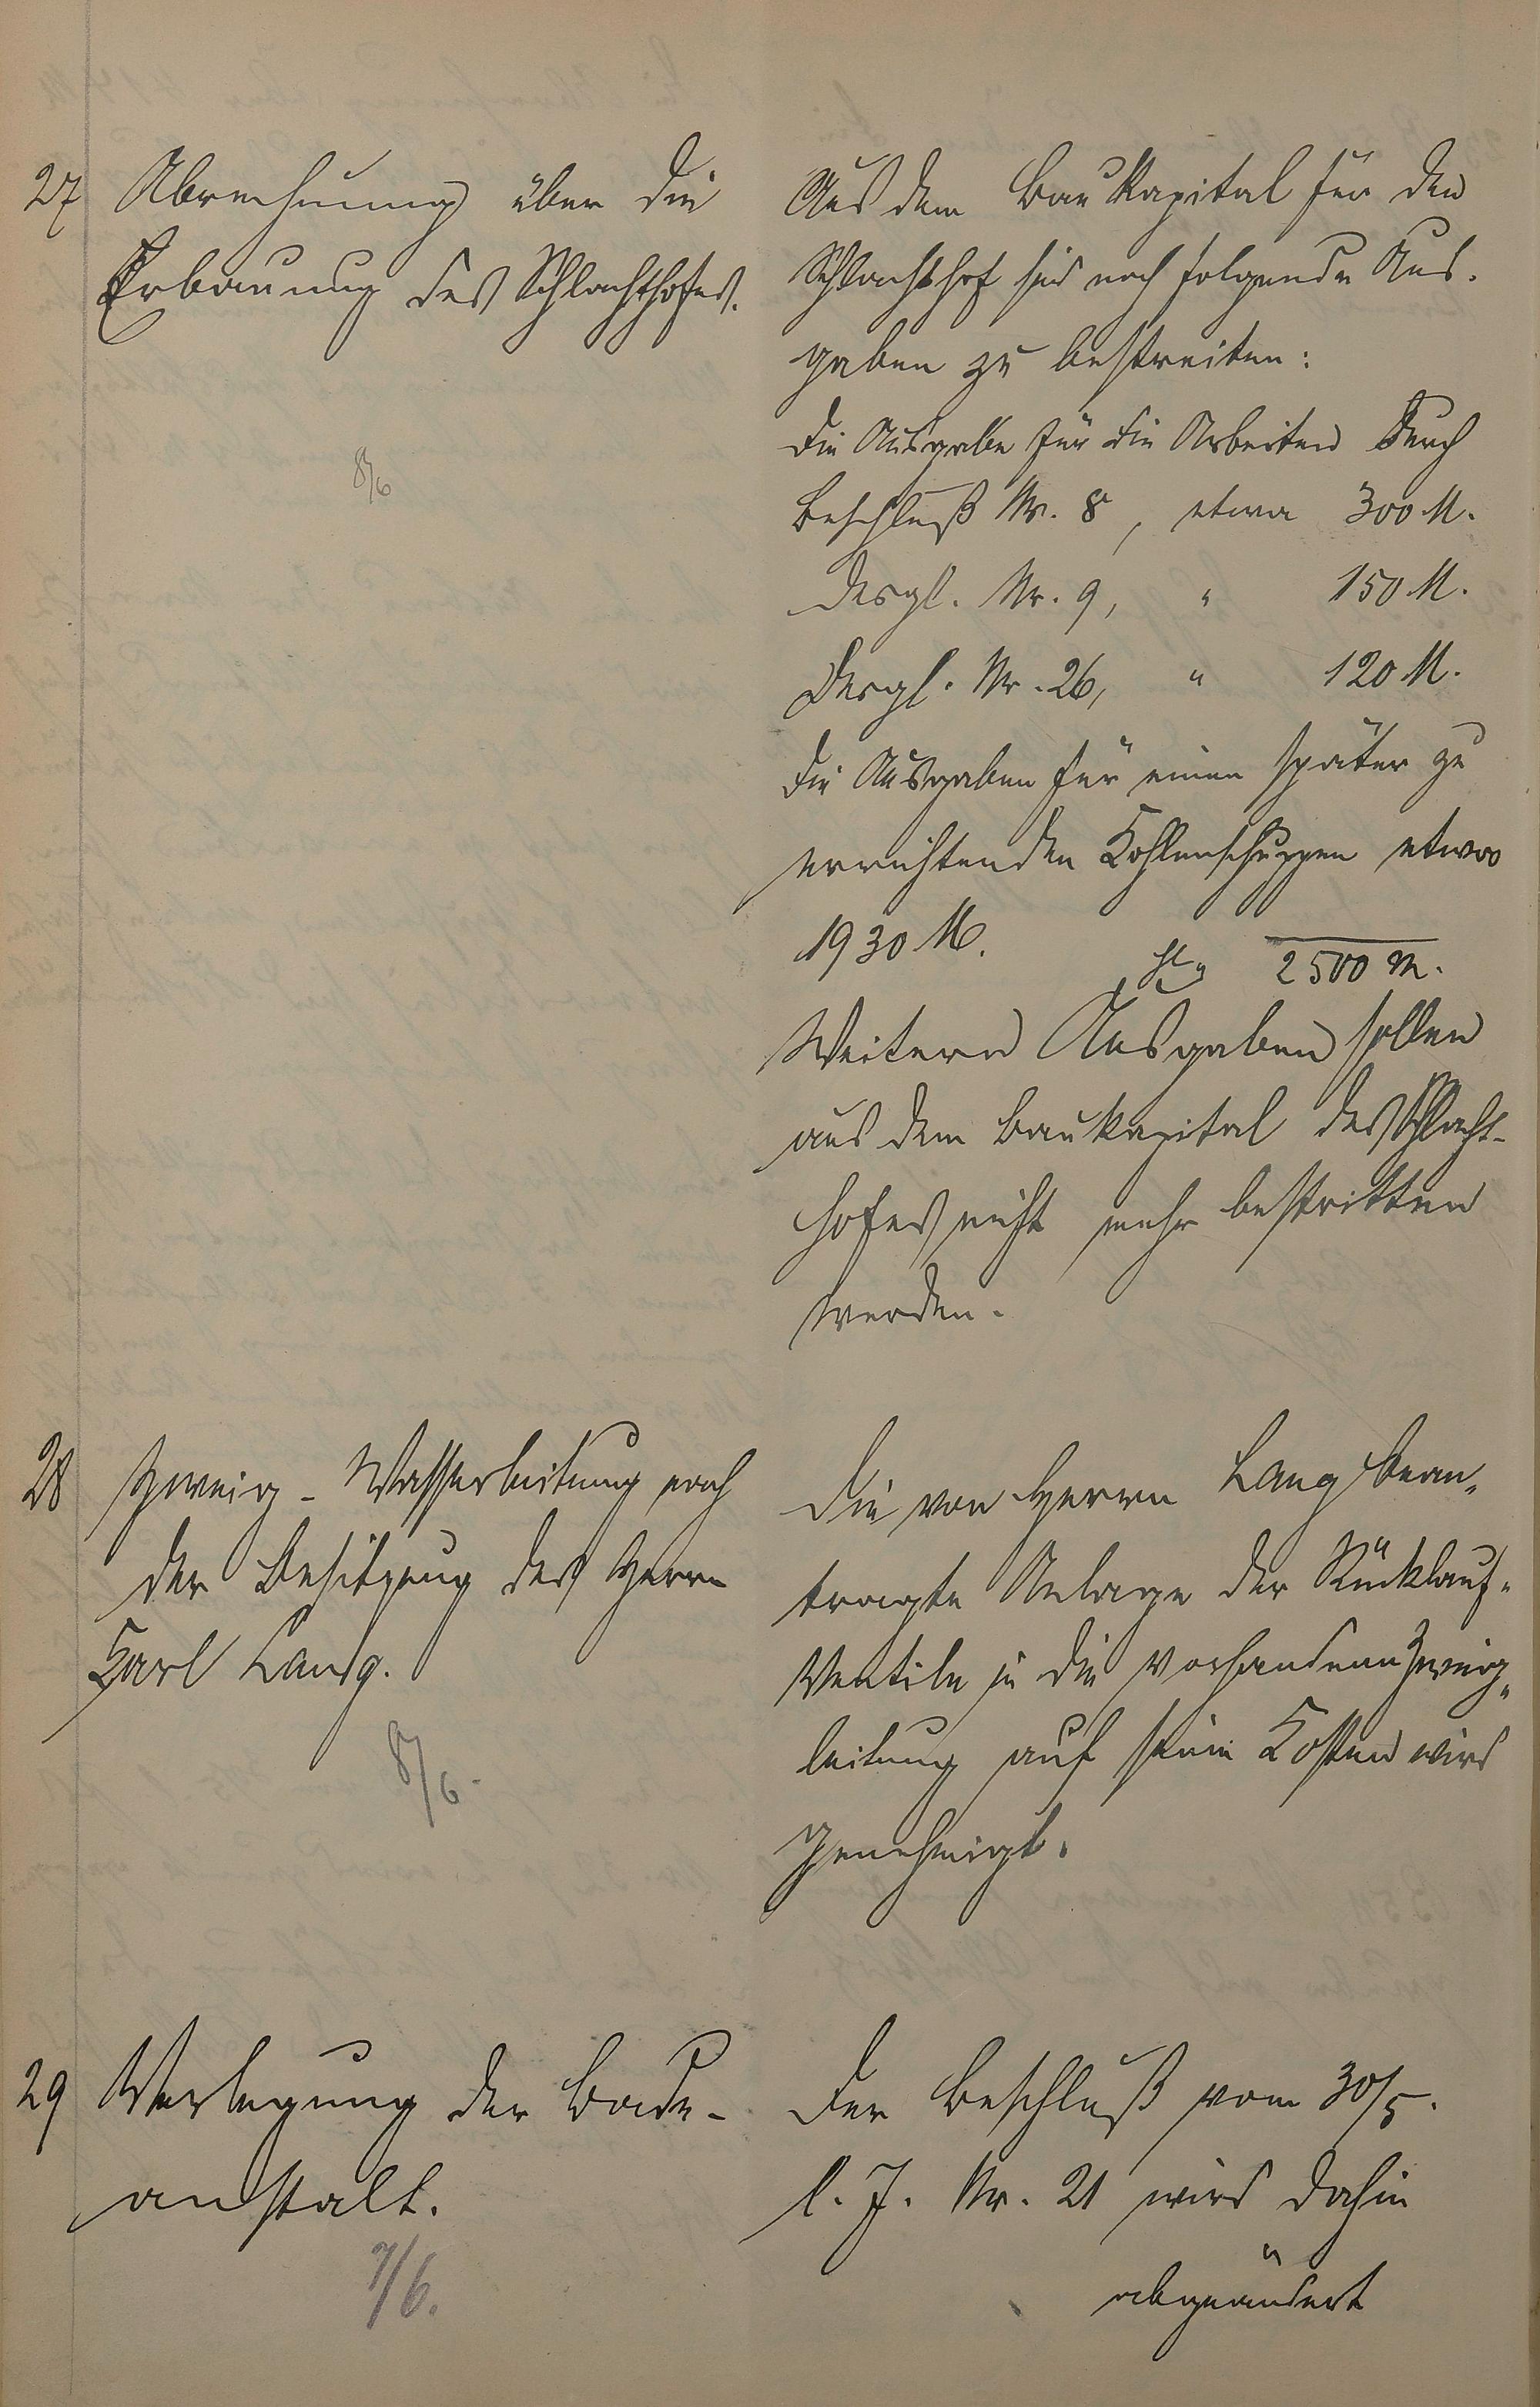 27 Abrechnung über die
Erbauung des Schlachthofes.
8/6
Aus dem Baukapital für den
Schlachthof sind noch folgende Aus-
gaben zu bestreiten:
die Ausgabe für die Arbeiten durch
Beschluß Nr. 8, etwa 300 M.
desgl. Nr. 9, " 150 M.
desgl. Nr. 26, " 120 M.
die Ausgaben für einen später zu
errichtenden Kohlenschuppen etwa
1930 M. 2500 M.
Weitere Ausgaben sollen
aus dem Baukapital des Schlacht-
hofes nicht mehr bestritten
werden.
28 Zweig-Wasserleitung nach
der Besitzung des Herrn
Karl Lang.
8/6.
Die von Herrn Lang bean-
tragte Anlage der Rücklauf-
Ventile in die vorhandene Zweig-
leitung auf seine Kosten wird
genehmigt.
29 Verlegung der Bade-
anstalt.
7/6.
Der Beschluß vom 30/5.
l. J. Nr. 21 wird dahin
abgeändert